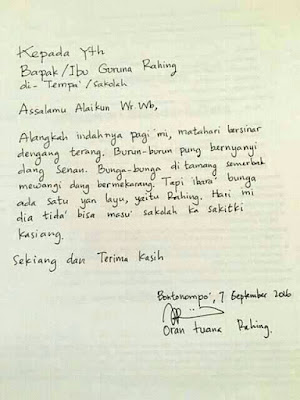 Kepada Yth
Bapak/Ibu Guruna Rahing
di-Tempa'/sakolah
Assalamu Alaikun Wr.Wb,
Alangkah indahnya pagi mi, matahari bersinar
dengang terang. Burun-burun pung bernyanyi
dang senan. Bunga-bunga di tamang semerbak
mewangi dang bermekarang. Tapi ibara' bunga
ada satu yan layu, yaitu Rahing. Hari mi
dia tida' bisa masu' sakolah ka sakitki
kasiang.
Sekiang dan Terima Kasih
Bontonompo', 7 September 2016
Oran tuana Rahing.